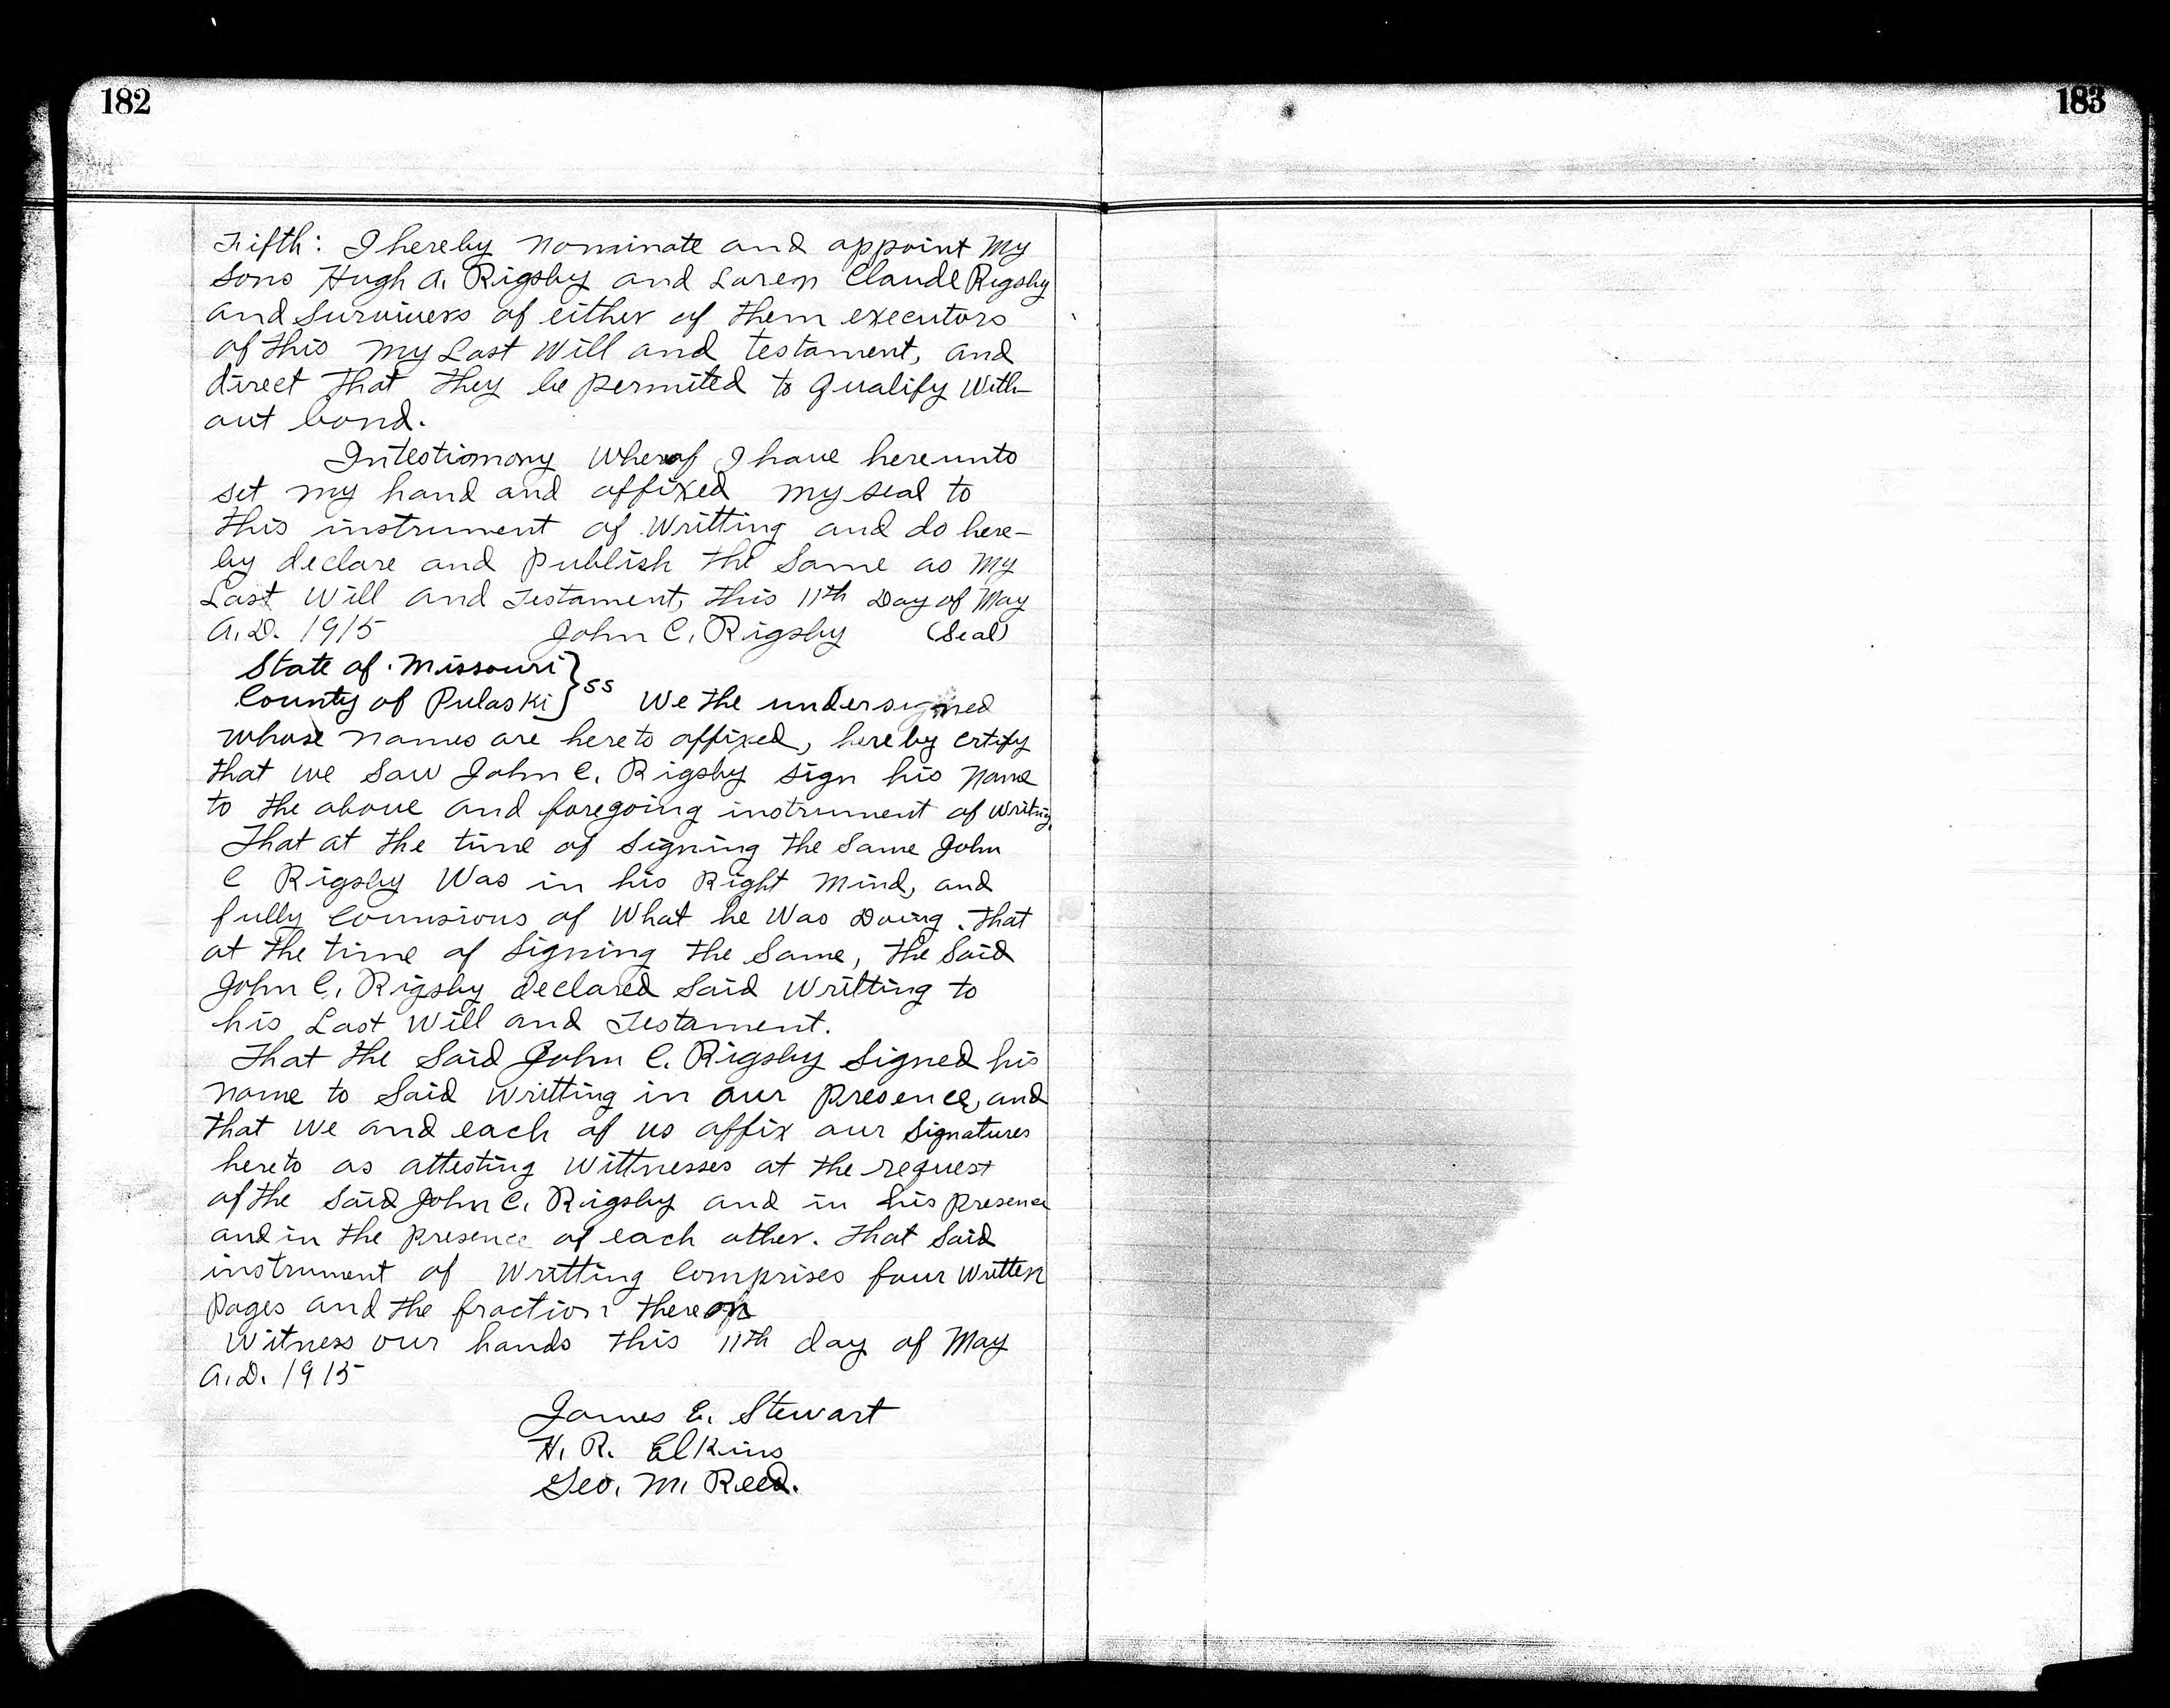 182
183
Fifth: I hereby nominate and appoint My
sons Hugh A. Rigsby and Loren Claude Rigsby
and Survivers of either of them executors
of this My Last Will and testament, and
direct that they be permited to qualify With-
out bond.
Intestiomony Wherof I have hereunto
set my hand and affixed my seal to
this instrument of Writting and do here-
by declare and publish the same as my
Last Will and Testament, this 11th Day of May
A.D. 1915 John C. Rigsby (Seal)
State of Missouri }
County of Pulaski } ss We the undersigned
whose names are hereto affixed, hereby certify
that we saw John C. Rigsby sign his name
to the above and foregoing instrument of writing.
That at the time of signing the same John
C Rigsby Was in his Right Mind, and
fully Counsious of What he Was Doing. That
at the time of signing the same, the said
John C. Rigsby declared said Writting to
his Last Will and Testament.
That the Said John C. Rigsby Signed his
name to Said Writting in our Presence, and
that we and each of us affix our Signatures
hereto as attesting Wittnesses at the request
of the Said John C. Rigsby and in his presence
and in the presence of each other. That Said
instrument of Writting Comprises four Written
pages and the fraction thereon
Witness our hands this 11th day of May
A.D. 1915
James E. Stewart
H. R. Elkins
Geo. M. Reed.